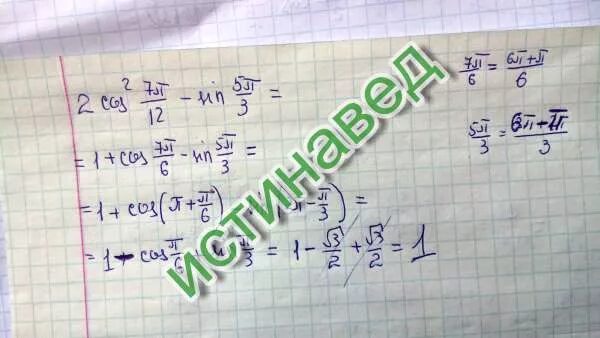 2 cos² 7π/12 - sin 5π/3 =
= 1 + cos 7π/6 - sin 5π/3 =
= 1 + cos(π + π/6) π - π/3) =
= 1 - cos π/6 π/3 = 1 - √3/2 + √3/2 = 1
7π/6 = 6π+π/6
5π/3 = 6π-π/3
истинавед